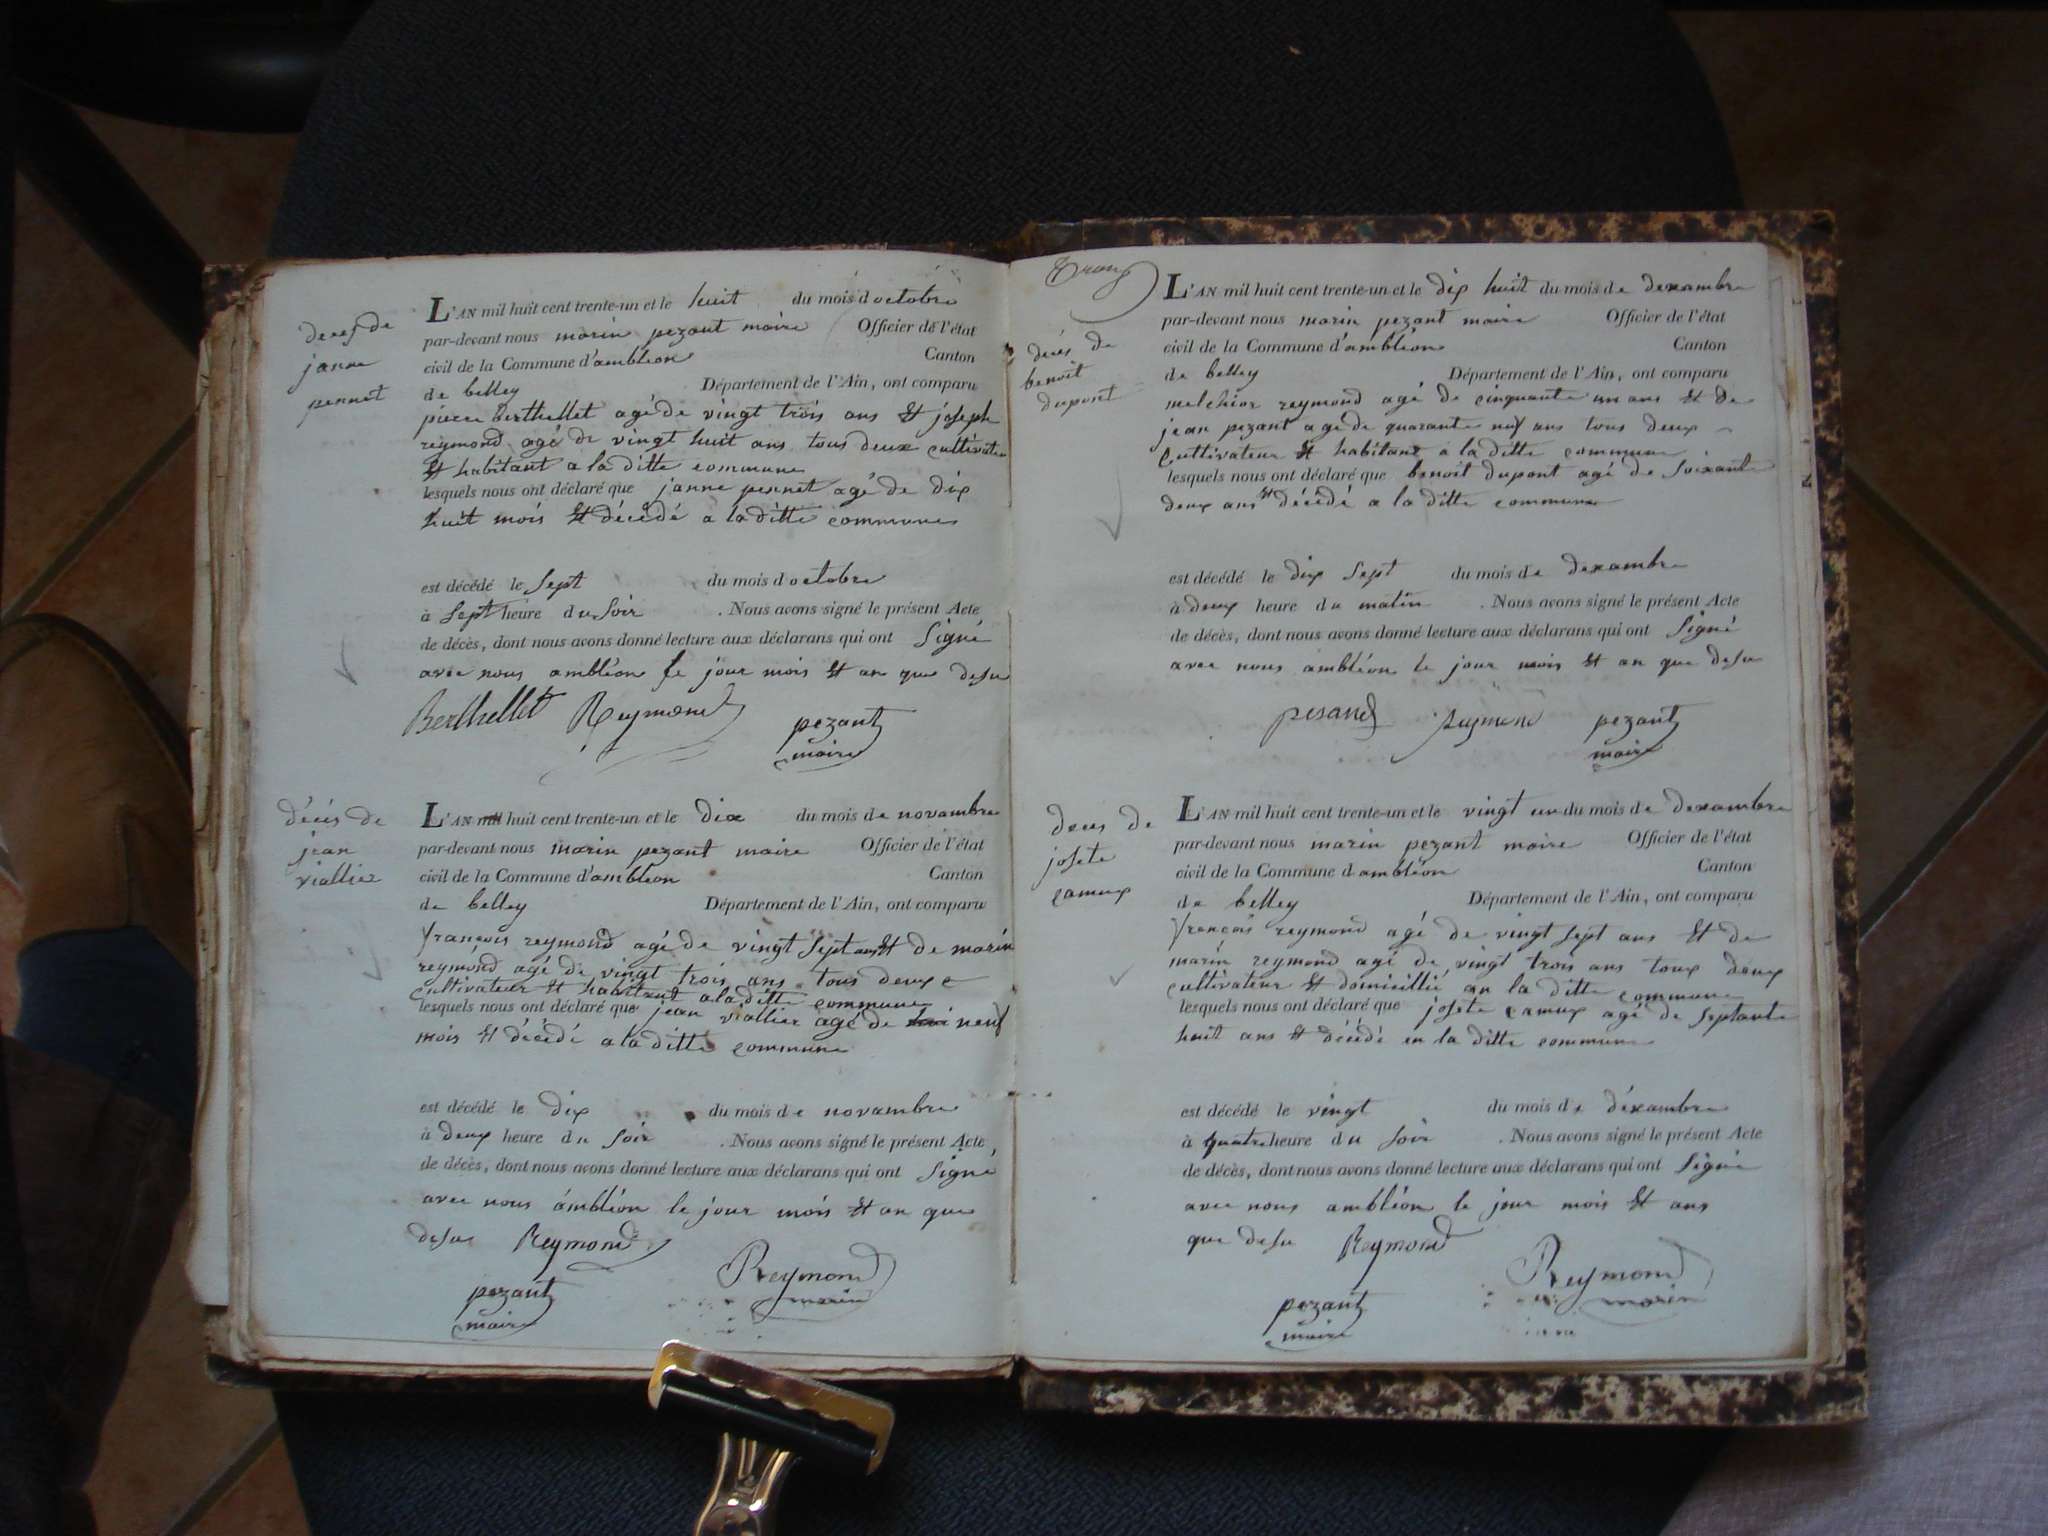 decès de
janne
pennet
L'AN mil huit cent trente-un et le huit du mois d octobre
par-devant nous marin pezant maire Officier de l'état
civil de la Commune d'ambléon Canton
de belley Département de l'Ain, ont comparu
pierre Berthellet agé de vingt trois ans et joseph
reymond agé de vingt huit ans tous deux cultivateur
et habitant a la ditte commune
lesquels nous ont déclaré que janne pennet agé de dix
huit mois et décédé a la ditte commune
est décédé le sept du mois d octobre
à sept heure du soir . Nous avons signé le présent Acte
de décès, dont nous avons donné lecture aux déclarans qui ont signé
avec nous ambléon le jour mois et an que desu
Berthellet Reymond pezant
maire
décés de
jean
viallier
L'AN mil huit cent trente-un et le dix du mois de novambre
par-devant nous marin pezant maire Officier de l'état
civil de la Commune d'ambléon Canton
de belley Département de l'Ain, ont comparu
françois reymond agé de vingt sept ans et de marin
reymond agé de vingt trois ans tous deux
cultivateur et habitant a la ditte commune
lesquels nous ont déclaré que jean viallier agé de neuf
mois et décédé a la ditte commune
est décédé le dix du mois de novambre
à deux heure du soir . Nous avons signé le présent Acte
de décès, dont nous avons donné lecture aux déclarans qui ont signé
avec nous ambléon le jour mois et an que
desu Reymond
Reymond
marin
pezant
maire
décés de
benoit
dupont
L'AN mil huit cent trente-un et le dix huit du mois de dexambre
par-devant nous marin pezant maire Officier de l'état
civil de la Commune d'ambléon Canton
de belley Département de l'Ain, ont comparu
melchior reymond agé de cinquante un ans et de
jean pezant agé de quarante neuf ans tous deux
cultivateur et habitant a la ditte commune
lesquels nous ont déclaré que benoit dupont agé de soixante
deux ans et décédé a la ditte commune
est décédé le dix sept du mois de dexambre
à deux heure du matin . Nous avons signé le présent Acte
de décès, dont nous avons donné lecture aux déclarans qui ont signé
avec nous ambléon le jour mois et an que desu
pesand reymond pezant
maire
deces de
josete
camux
L'AN mil huit cent trente-un et le vingt un du mois de dexambre
par-devant nous marin pezant maire Officier de l'état
civil de la Commune d'ambléon Canton
de belley Département de l'Ain, ont comparu
françois reymond agé de vingt sept ans et de
marin reymond agé de vingt trois ans toux deux
cultivateur et domicillié en la ditte commune
lesquels nous ont déclaré que josete camux agé de septante
huit ans et décédé en la ditte commune
est décédé le vingt du mois de déxambre
à quatre heure du soir . Nous avons signé le présent Acte
de décès, dont nous avons donné lecture aux déclarans qui ont signé
avec nous ambléon le jour mois et ans
que desu Reymond
Reymond
marin
pezant
maire